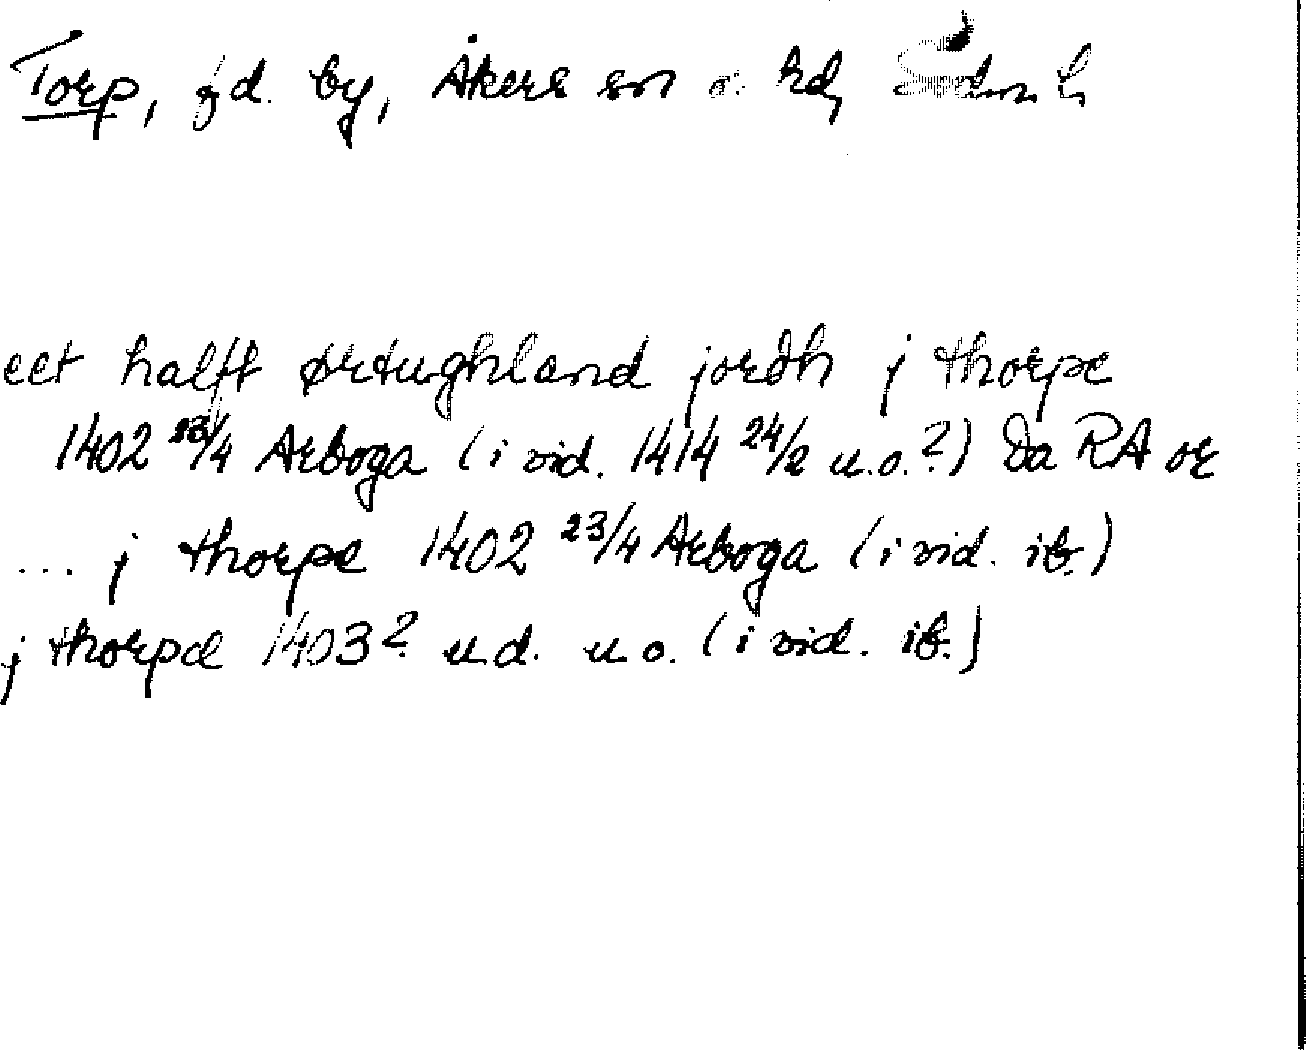 Torp, fd. by, Åkers sn o. hd, Södm. l.
eet halfft ørtughland jordh j thorpe
1402 23/4 Arboga (i vid. 1414 24/2 u.o.?) Da RA or
... j thorpe 1402 23/4 Arboga (i vid. ib.)
j thorpæ 1403? u.d. u.o. (i vid. ib.)